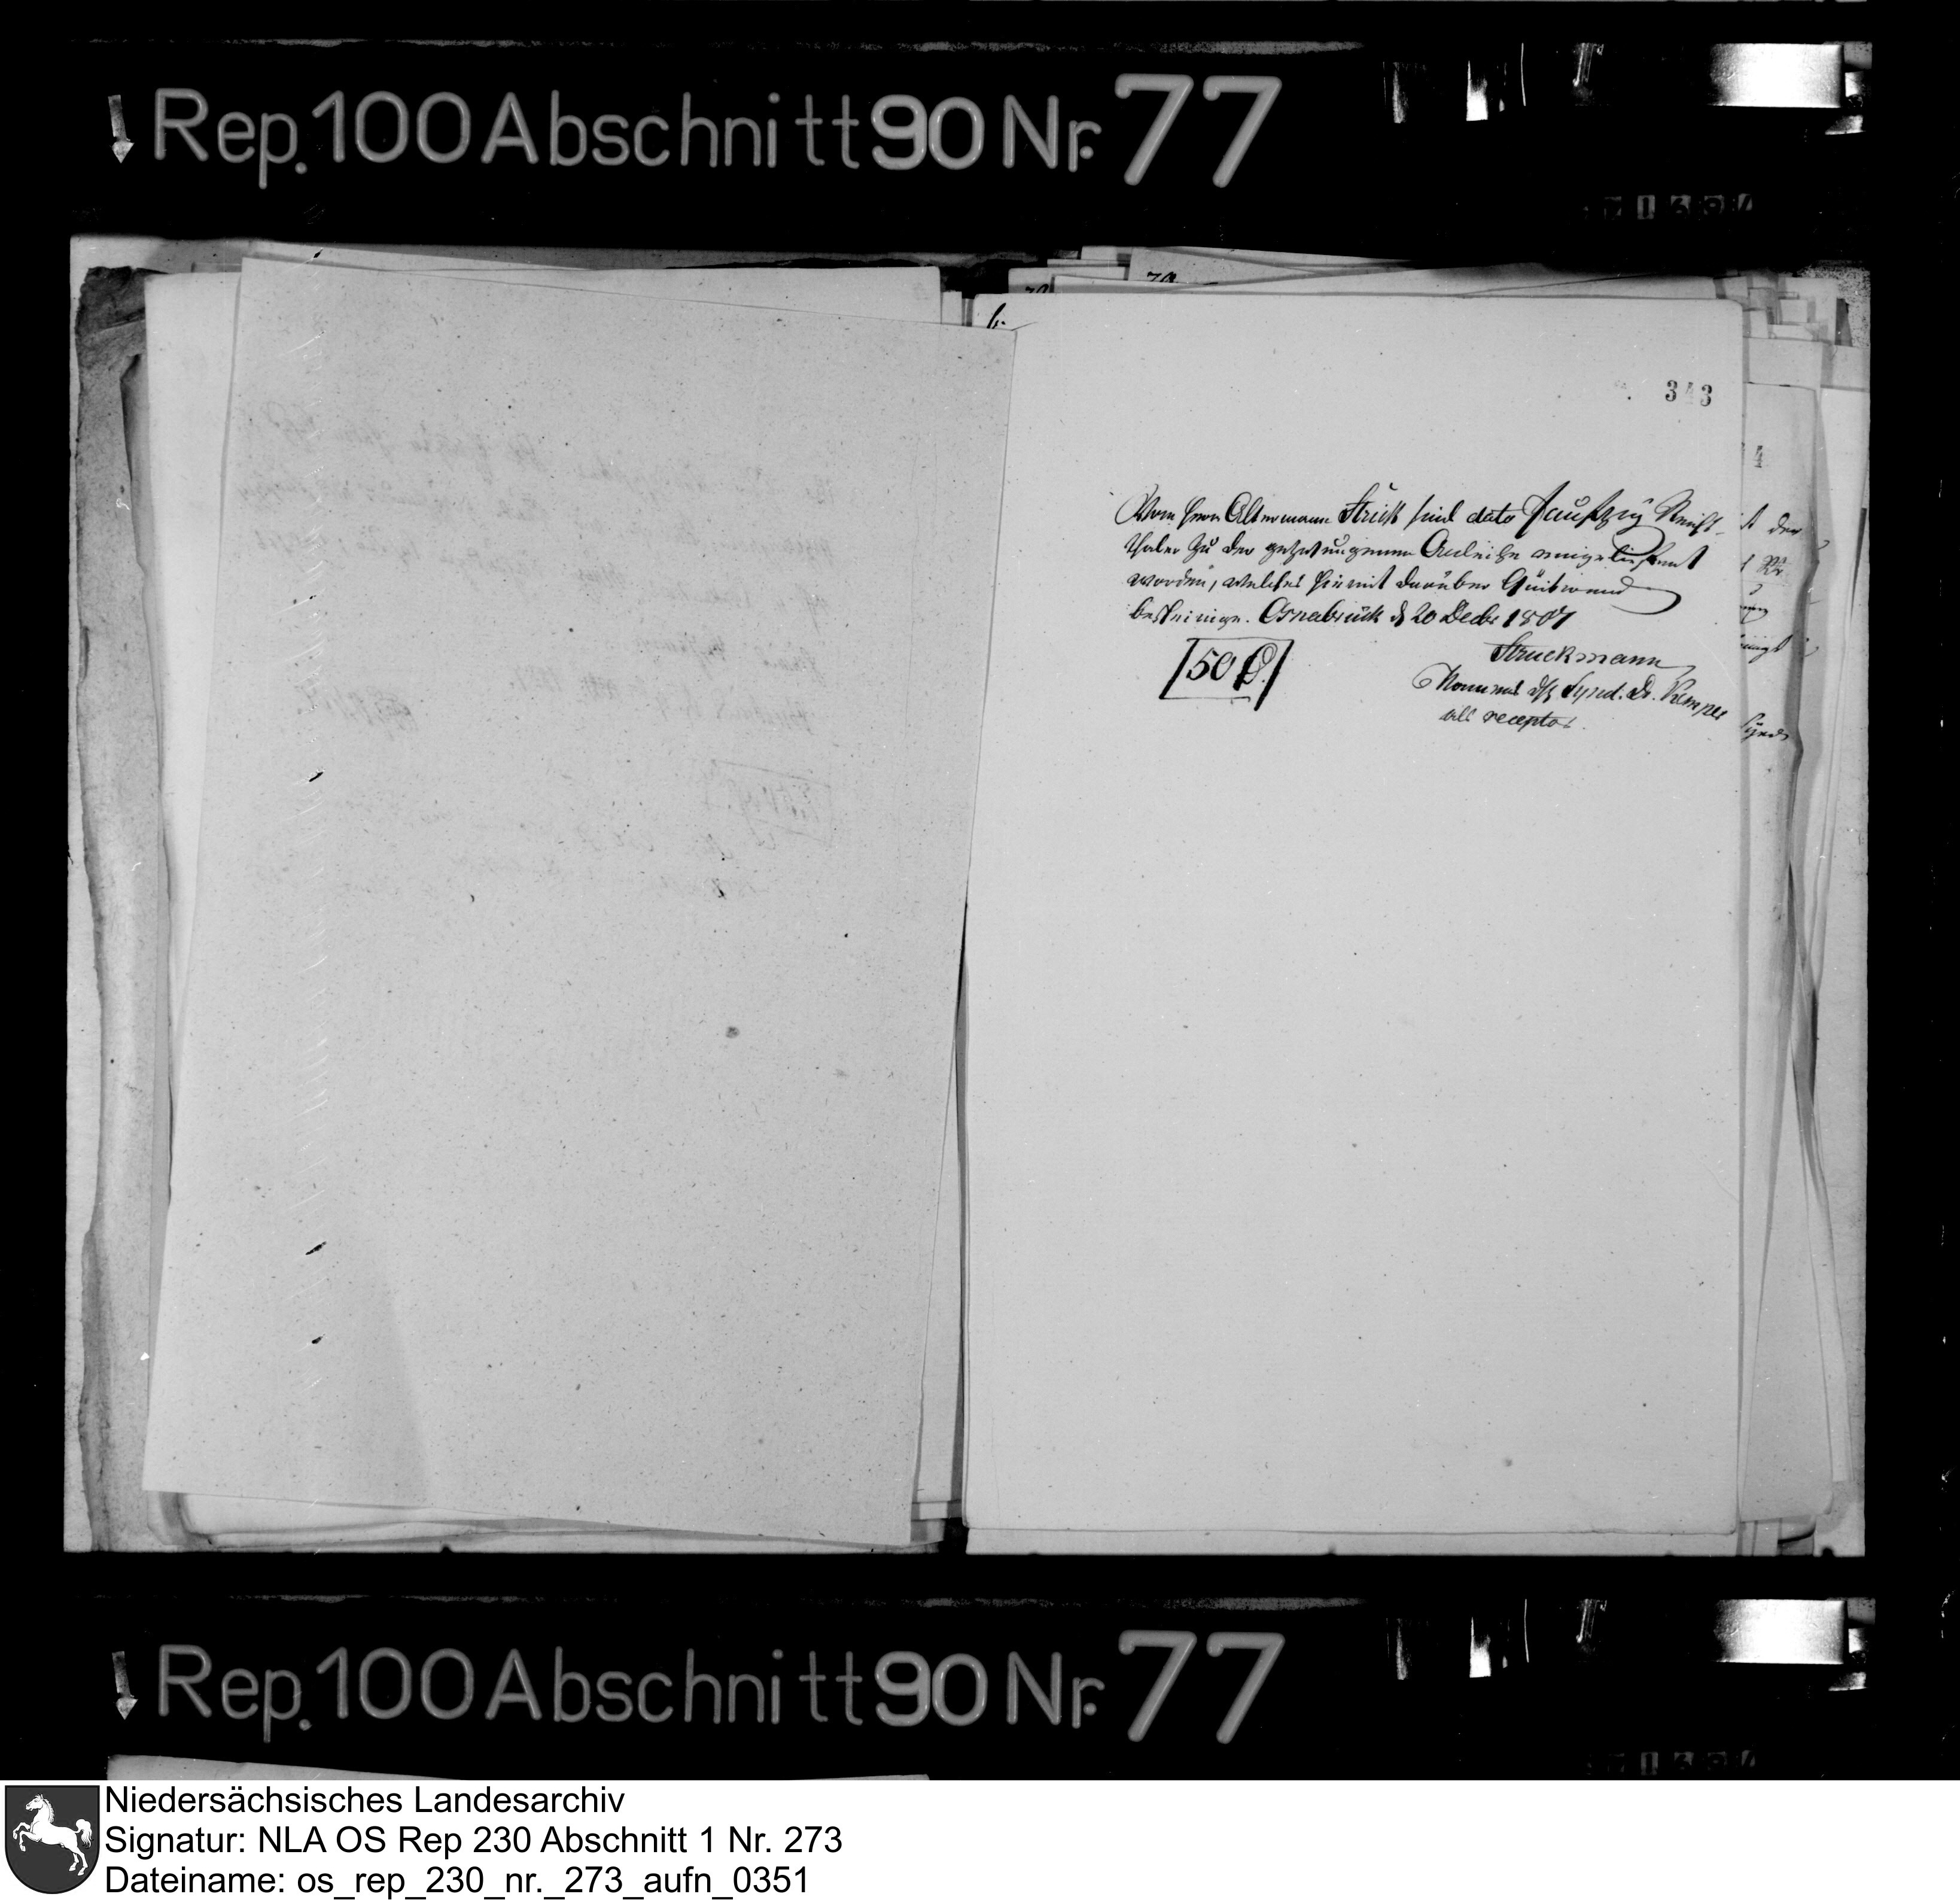 Rep. 100 Abschnitt 90 Nr. 77
343
Vom Herrn Altermann Struck sind dato Funfzig Reichs-
thaler zu der gezwungenen Anleihe eingeliefert
worden, welches hiermit darüber Quitirend
bescheinige. Osnabrück d 20 Decbr 1807
Struckmann
50
Nomine des Synd. Dr. Kemper
als receptor.
Rep. 100 Abschnitt 90 Nr. 77
Niedersächsisches Landesarchiv
Signatur: NLA OS Rep 230 Abschnitt 1 Nr. 273
Dateiname: os_rep_230_nr._273_aufn_0351